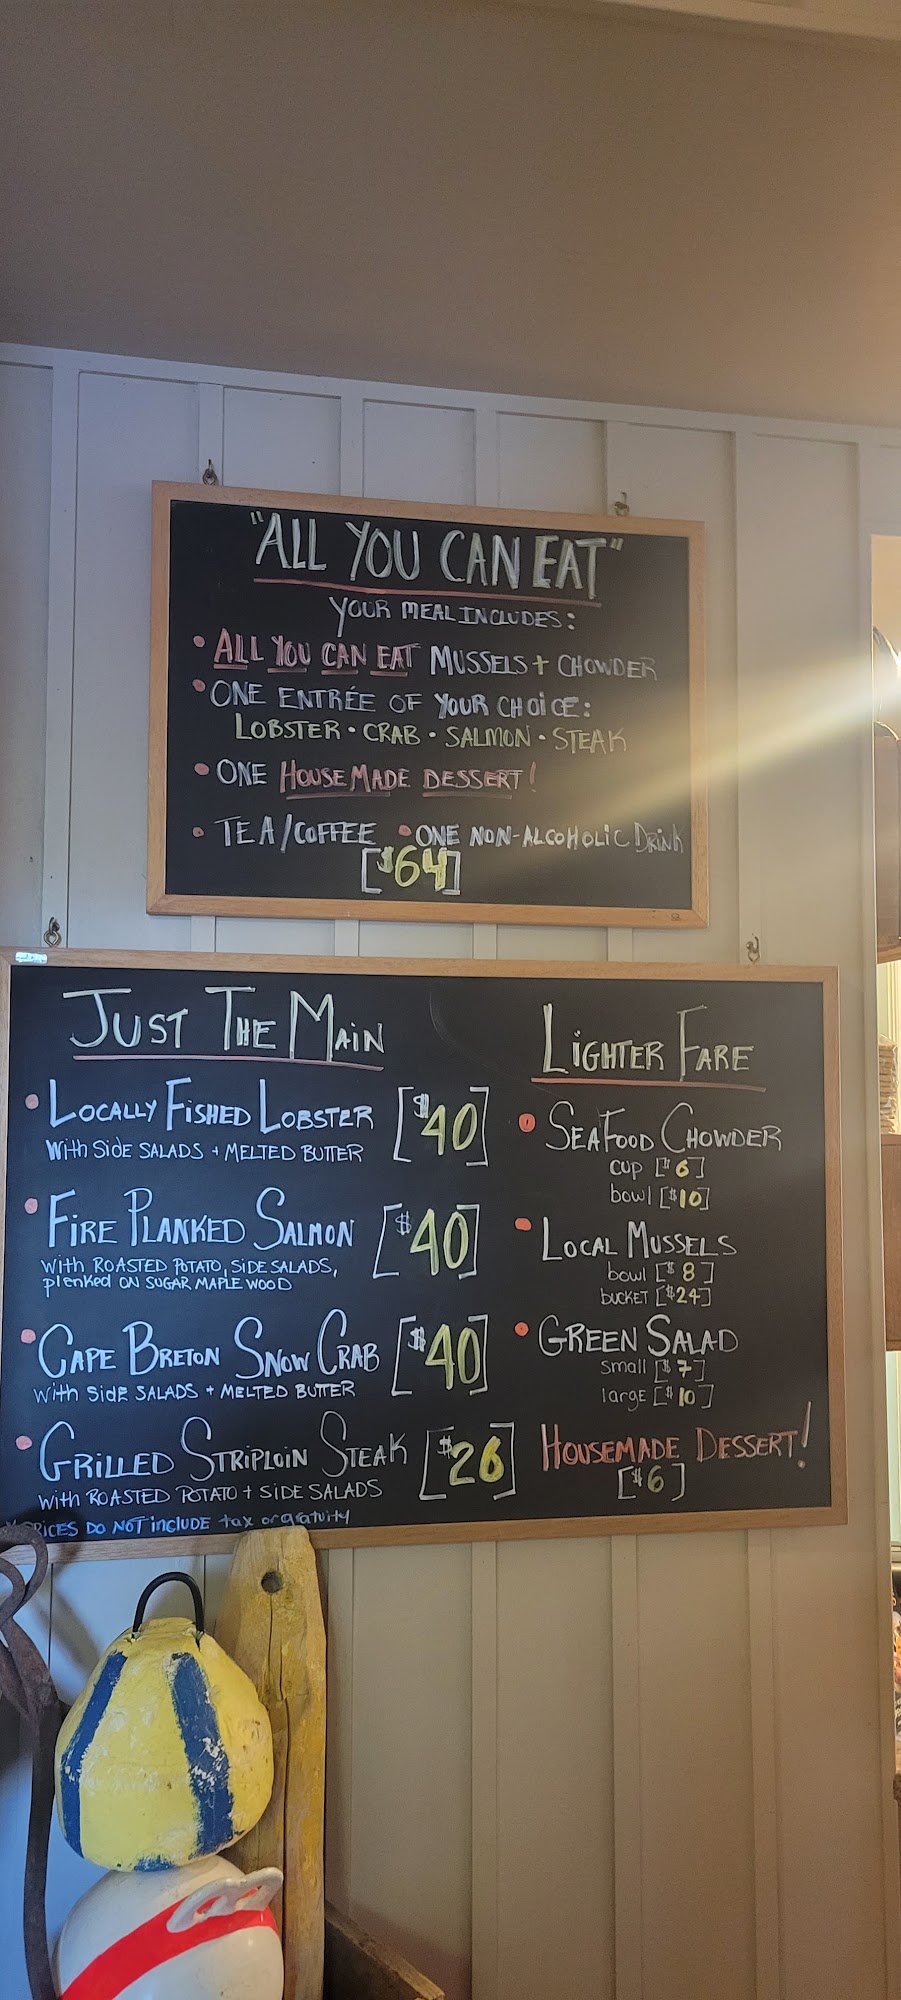 "ALL YOU CAN EAT"
YOUR MEAL INCLUDES:
• ALL YOU CAN EAT MUSSELS + CHOWDER
• ONE ENTRÉE OF YOUR CHOICE:
LOBSTER • CRAB • SALMON • STEAK
• ONE HOUSEMADE DESSERT!
• TEA/COFFEE • ONE NON-ALCOHOLIC DRINK
[$64]
JUST THE MAIN
• LOCALLY FISHED LOBSTER [$40]
with Side SALADS + MELTED BUTTER
• FIRE PLANKED SALMON [$40]
with ROASTED POTATO, SIDE SALADS,
plenked ON SUGAR MAPLE WOOD
• CAPE BRETON SNOW CRAB [$40]
with Side SALADS + MELTED BUTTER
• GRILLED STRIPLOIN STEAK [$26]
with ROASTED POTATO + SIDE SALADS
PRICES DO NOT include tax or gratuity
LIGHTER FARE
• SEAFOOD CHOWDER
cup [$6]
bowl [$10]
• LOCAL MUSSELS
bowl [$8]
BUCKET [$24]
• GREEN SALAD
small [$7]
large [$10]
HOUSEMADE DESSERT!
[$6]